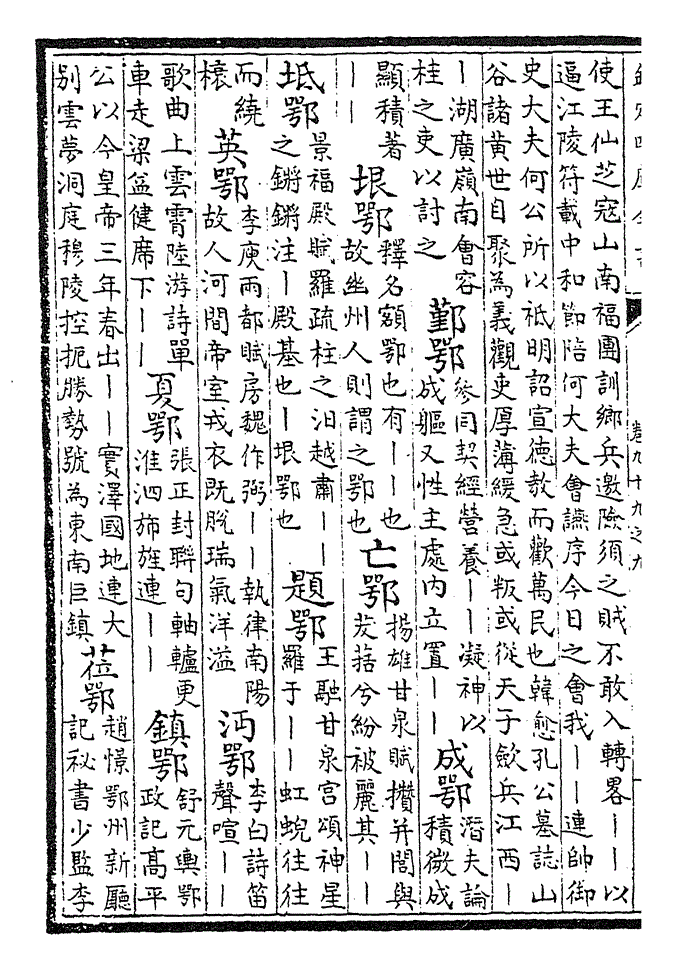 使王仙芝寇山南福團訓鄉兵邀險須之賊不敢入轉畧丨丨以
逼江陵符載中和節陪何大夫會讌序今日之會我丨丨連帥御
史大夫何公所以祗明詔宣徳教而歡萬民也韓愈孔公墓誌山
谷諸黃世自聚為義觀吏厚薄緩急或叛或從天子歛兵江西丨
丨湖廣嶺南會容
桂之吏以討之
鄞鄂
參同契經營養丨丨凝神以
成軀又性主處内立置丨丨
成鄂
潛夫論
積微成
顯積著
丨丨
垠鄂
釋名額鄂也有丨丨也
故幽州人則謂之鄂也
亡鄂
揚雄甘泉賦攢并閭與
茇葀兮紛被麗其丨丨
坻鄂
景福殿賦羅疏柱之汩越肅丨丨
之鏘鏘注丨殿基也丨垠鄂也
題鄂
王融甘泉宮頌神星
羅于丨丨虹蜺往往
而繞
榱
英鄂
李庾兩都賦房魏作弼丨丨執律南陽
故人河間帝室戎衣既脫瑞氣洋溢
沔鄂
李白詩笛
聲喧丨丨
歌曲上雲霄陸游詩單
車走梁益健席下丨丨
夏鄂
張正封聯句軸轤更
淮泗斾旌連丨丨
鎮鄂
舒元輿鄂
政記髙平
公以今皇帝三年春出丨丨實澤國地連大
别雲夢洞庭穆陵控扼勝勢號為東南巨鎮
莅鄂
趙憬鄂州新廳
記秘書少監李